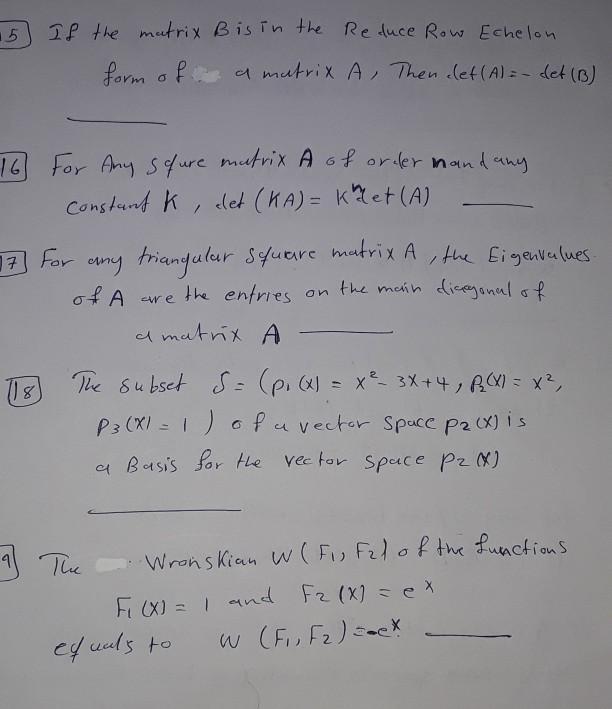 15 If the matrix B is in the Reduce Row Echelon
form of a matrix A, Then det(A) = - det(B)
16 For Any squre matrix A of order n and any
Constant K, det (KA) = Kⁿdet(A)
17 For any triangular square matrix A, the Eigenvalues
of A are the entries on the main diagonal of
a matrix A
18 The subset S = (P₁(x) = x² - 3x+4, P₂(x) = x²,
P₃(x) = 1) of a vector space P₂(x) is
a Basis for the vector space P₂(x)
9 The Wronskian W(F₁, F₂) of the functions
F₁(x) = 1 and F₂(x) = eˣ
equals to W (F₁, F₂) = -eˣ.